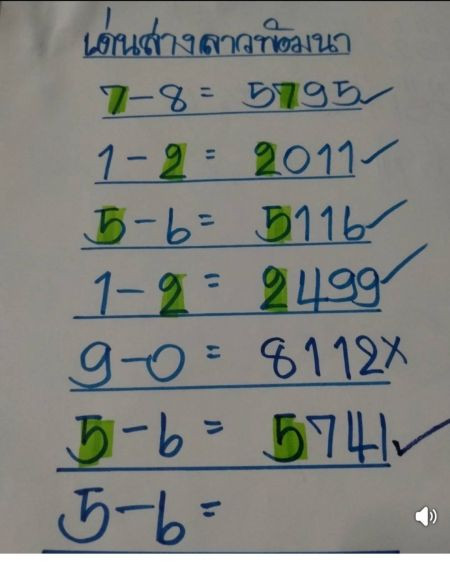 เด่นล่างลาวพัฒนา
7-8= 5795✓
1-2= 2011✓
5-6= 5116✓
1-2= 2499✓
9-0= 8112×
5-6= 5741✓
5-6=